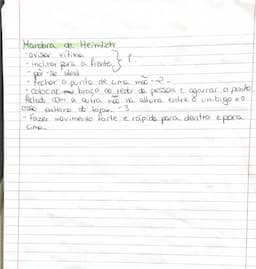 Manobra de Heimlich
- avisar vítima
- inclinar para a frente } 1.
- pôr-se atrás
- Fechar o punho de uma mão -2-
- colocar braço ao redor da pessoa e agarrar o punho
fechado com a outra mão na altura entre o umbigo e o
osso externo do -3
- Fazer movimento forte e rápido para dentro e para
cima.